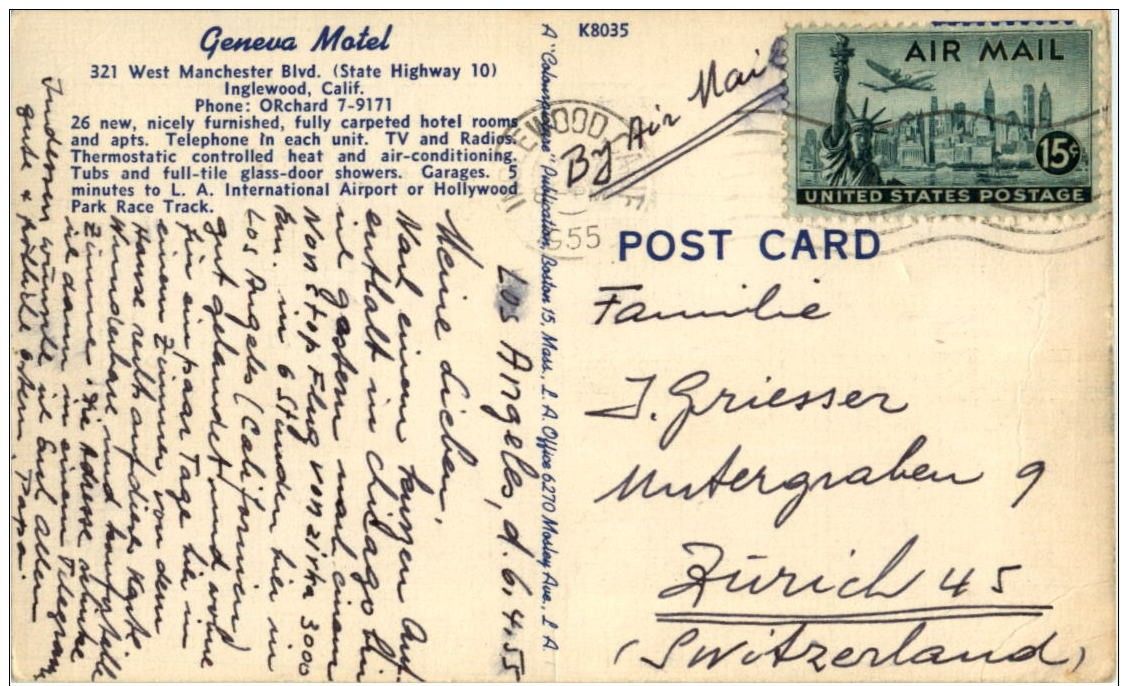 Geneva Motel
321 West Manchester Blvd. (State Highway 10)
Inglewood, Calif.
Phone: ORchard 7-9171
26 new, nicely furnished, fully carpeted hotel rooms
and apts. Telephone in each unit. TV and Radios.
Thermostatic controlled heat and air-conditioning.
Tubs and full-tile glass-door showers. Garages. 5
minutes to L. A. International Airport or Hollywood
Park Race Track.
Los Angeles, d. 6.4.55
Meine Lieben,
Nach einem kurzen Auf-
enthalt in Chicago bin
ich gestern nach einem
Non Stop Flug von zirka 3000
km. in 6 Stunden hier in
Los Angeles (Californien)
gut gelandet und wohne
für ein paar Tage hier in
einem Zimmer von dem
Hause rechts auf dieser Karte.
Wunderbare und
Zimmer. Die Adresse schicke
ich dann in einem Telegramm
Indessen wünsche ich Euch allen
gute + fröhliche Ostern, Papa.
A "Colourpicture" Publication, Boston 15, Mass., L. A. Office 6270 Mosley Ave., L. A.
K8035
By Air Mail
INGLEWOOD
1955
AIR MAIL
15¢
UNITED STATES POSTAGE
POST CARD
Familie
J. Griesser
Untergraben 9
Zürich 45
(Switzerland)